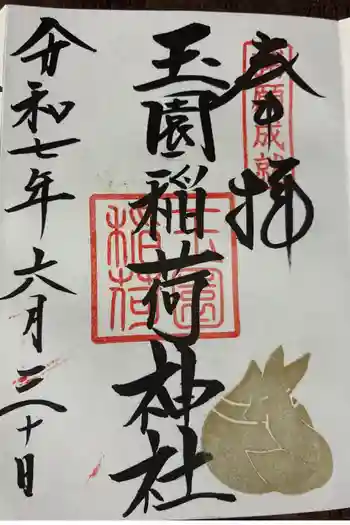 奉拝
心願成就
玉園稲荷神社
玉園
稲荷
令和七年六月三十日